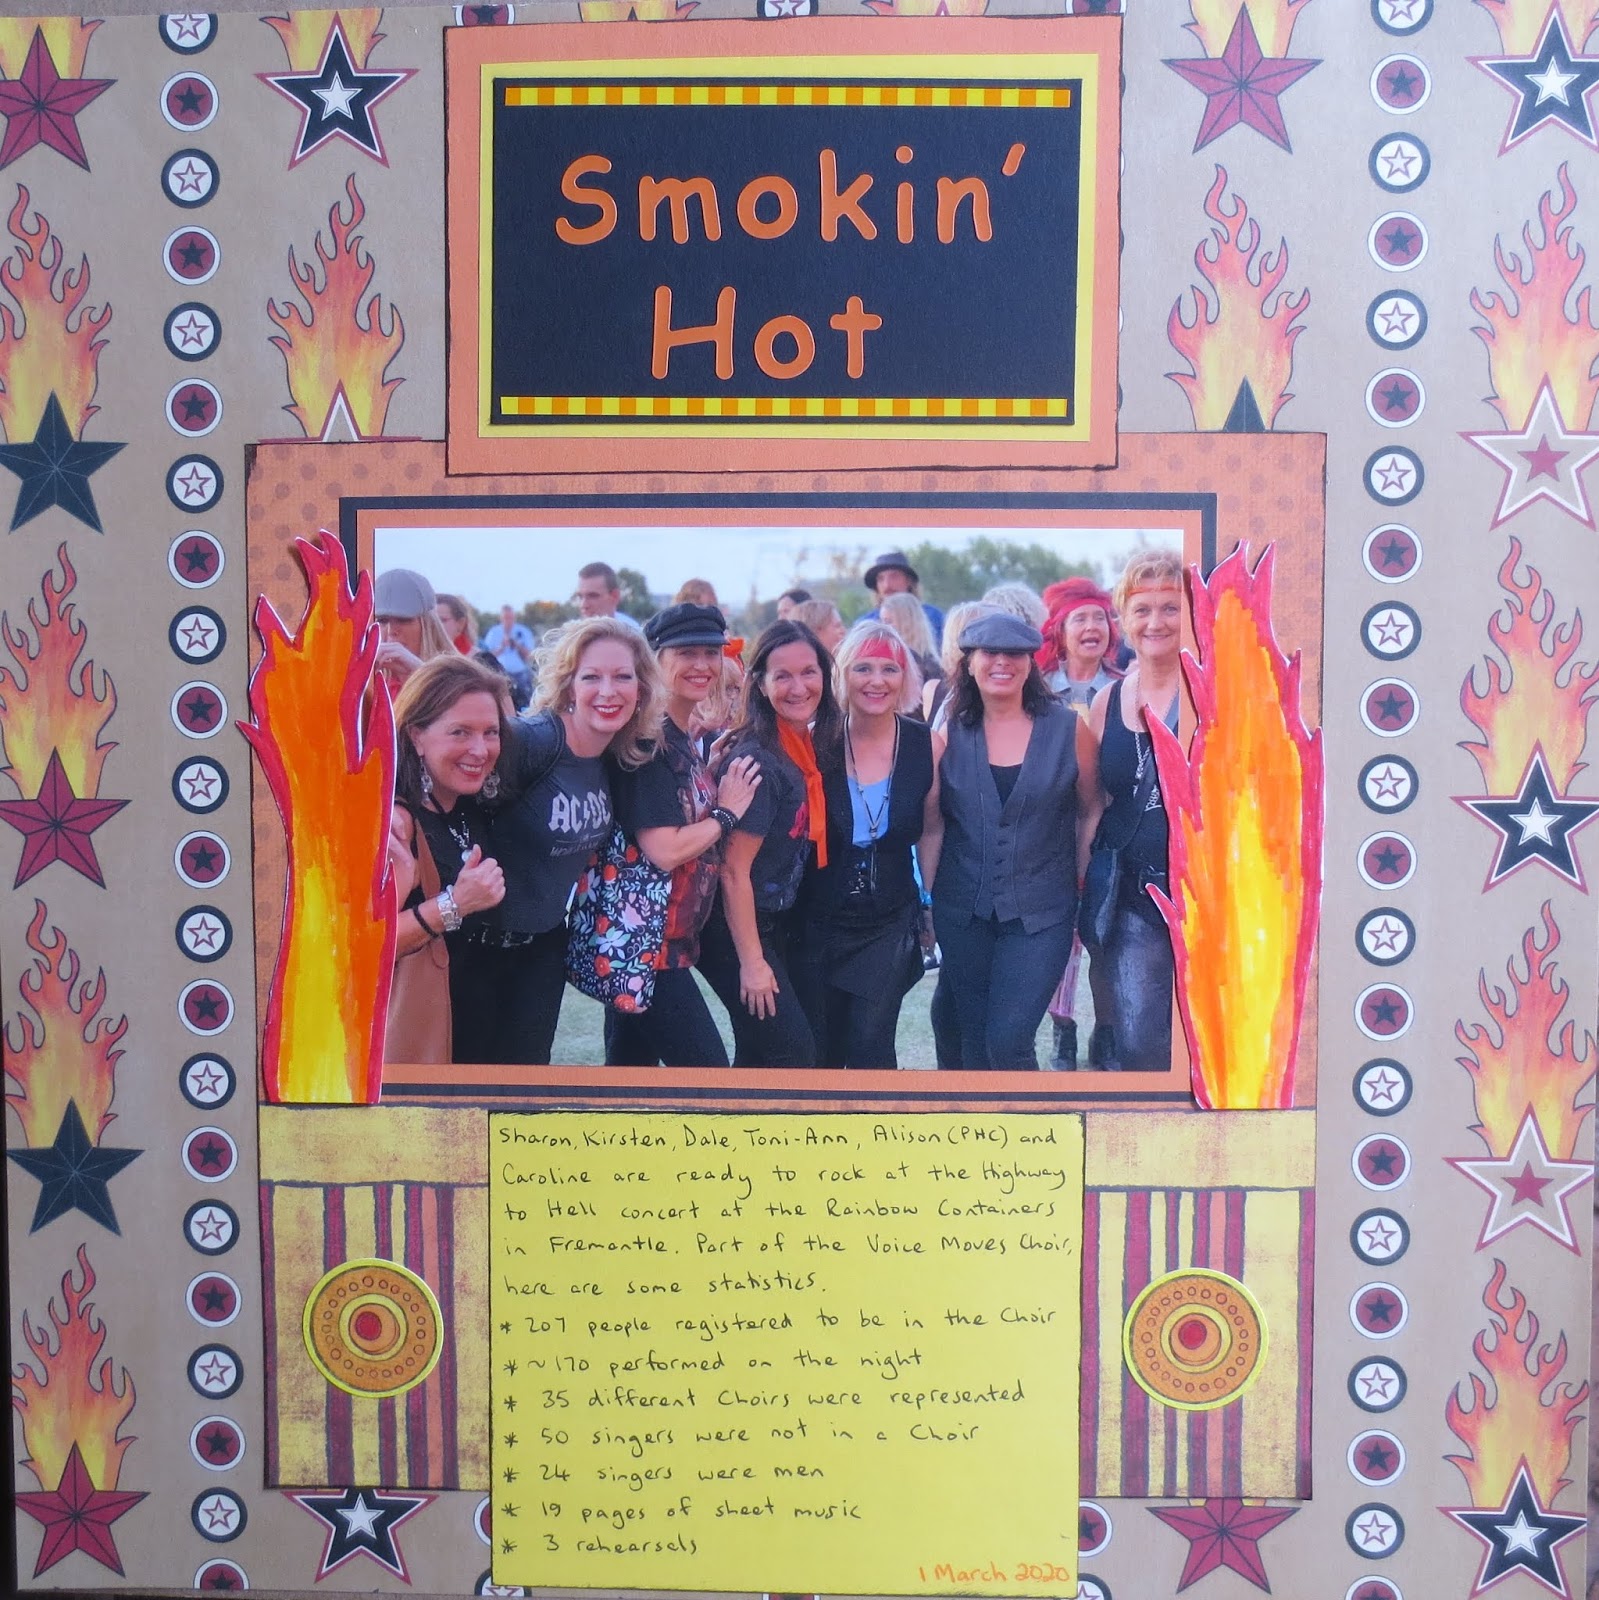 Smokin'
Hot
AC DC
Sharon, Kirsten, Dale, Toni-Ann, Alison (PHC) and
Caroline are ready to rock at the Highway
to Hell concert at the Rainbow Containers
in Fremantle. Part of the Voice Moves Choir,
here are some statistics.
* 207 people registered to be in the Choir
* ~170 performed on the night
* 35 different Choirs were represented
* 50 singers were not in a Choir
* 24 singers were men
* 19 pages of sheet music
* 3 rehearsels
1 March 2020